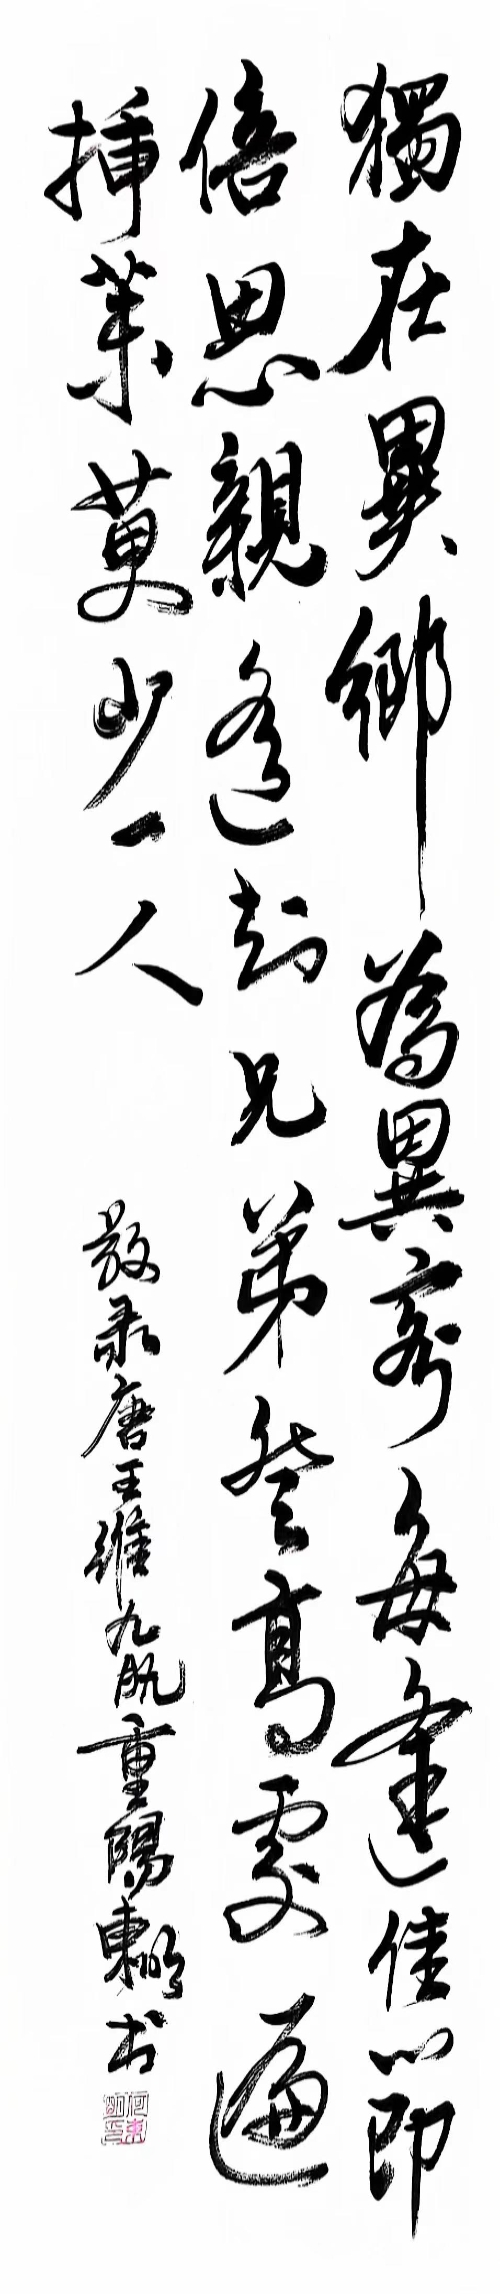 獨在異鄉為異客每逢佳節
倍思親遙知兄弟登高處遍
插茱萸少一人
敬录唐王維九月九重陽東明书
何東明印